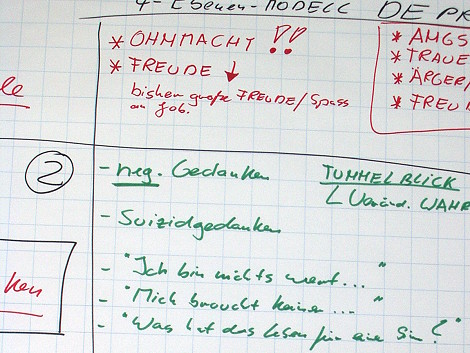 4-Ebenen-MODELL DEPR
* OHNMACHT !!
* FREUDE ↓
bisher große FREUDE/Spass
an Job.
* ANGS
* TRAUE
* ÄRGER/
* FREU
le
②
- neg. Gedanken
- Suizidgedanken
- "Ich bin nichts wert..."
- "Mich braucht keiner..."
- "Was hat das Leben für eine Sinn?"
TUNNELBLICK
WAHR
ken